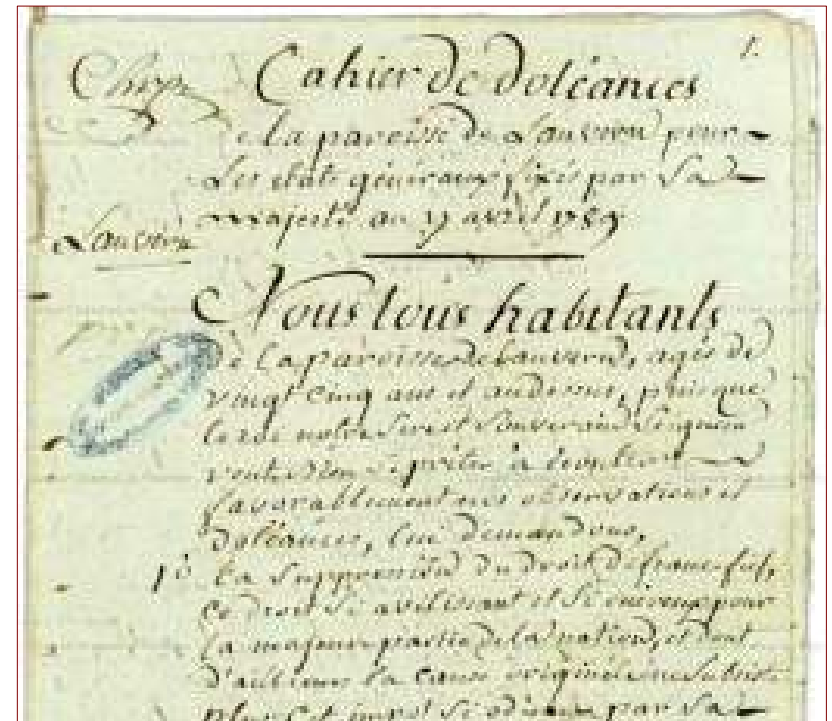 1.
Cahier de doléances
de la paroisse de Lauvern pour
Les etats généraux fixés par Sa
majesté au 27 avril 1789
Nous tous habitants
de la paroisse de Lauvern, agés de
vingt cinq ans et audessus, puisque
le roi notre Sire et Souverain Seigneur
veut bien se prêter à écouter
favorablement nos observations et
doléances, lui demandons,
1° La Suppression du droit de franc fief,
ce droit Si avilissant et Si onéreux pour
la majeure partie de la nation, et dont
d'ailleurs la cause originelle ne Subsiste
plus Cet impot Si odieux par Sa